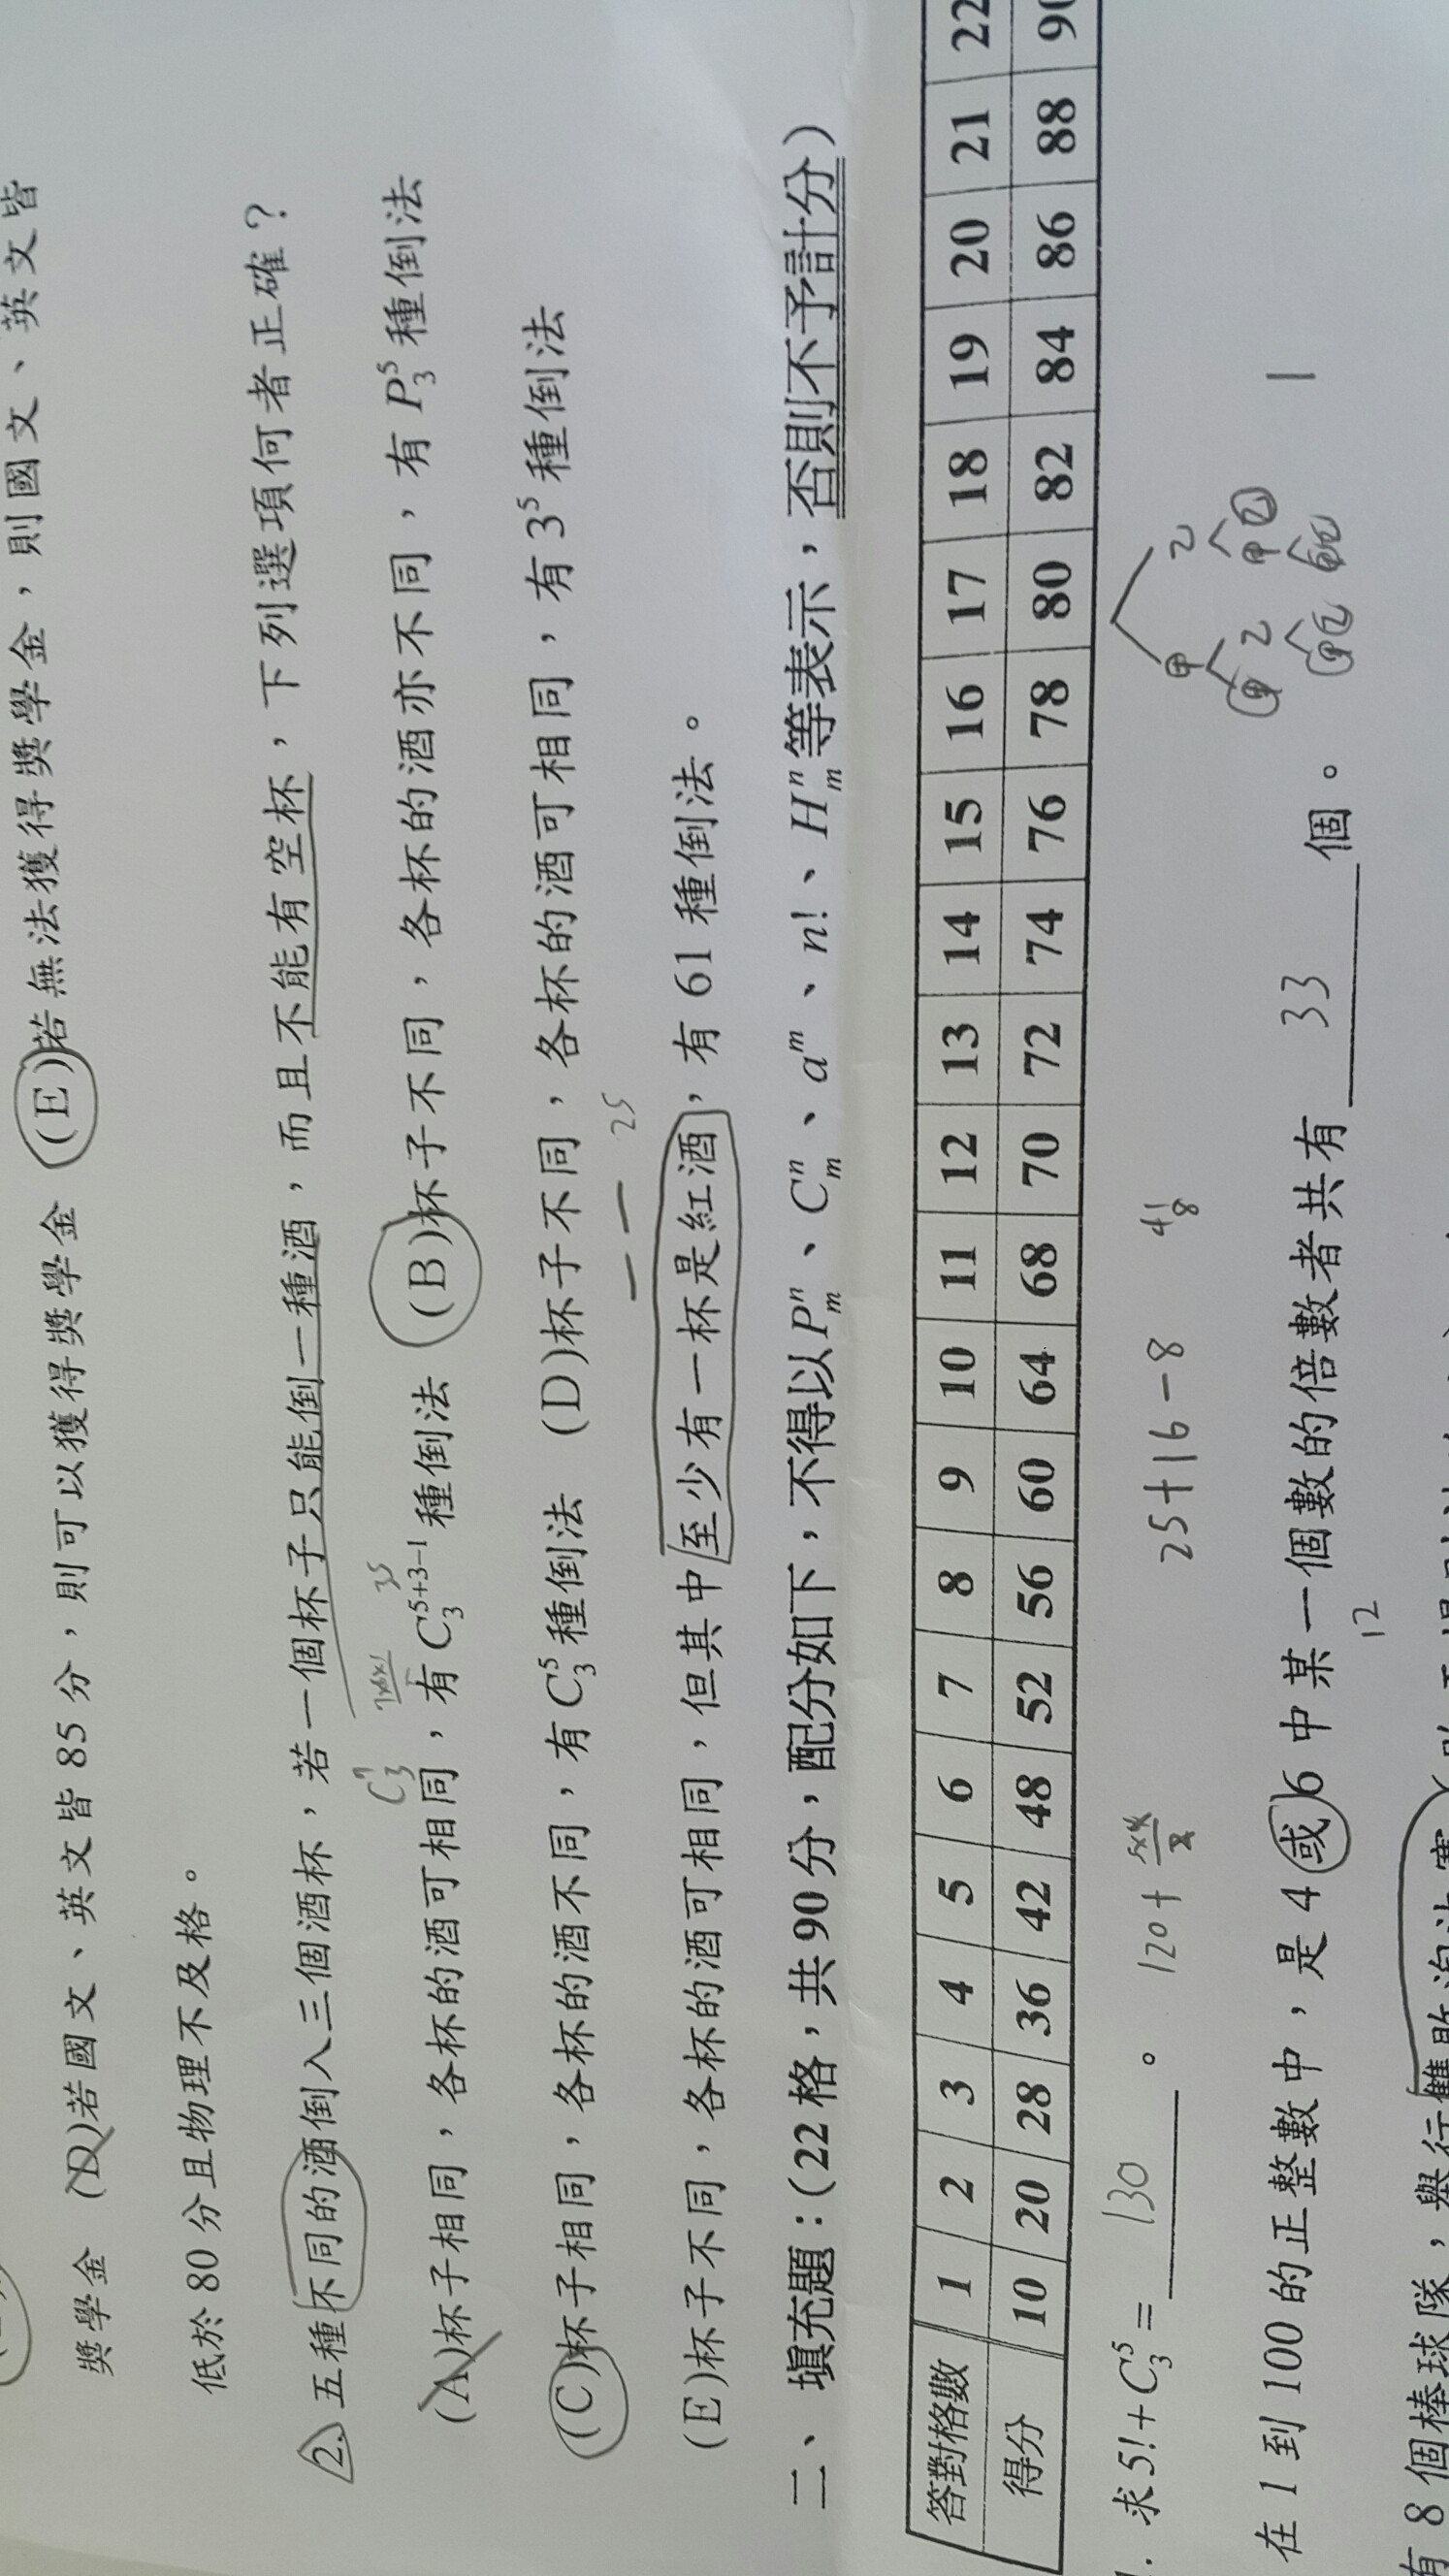 獎學金 (D)若國文、英文皆 85 分，則可以獲得獎學金 (E)若無法獲得獎學金，則國文、英文皆
低於 80 分且物理不及格。
2. 五種不同的酒倒入三個酒杯，若一個杯子只能倒一種酒，而且不能有空杯，下列選項何者正確？
C⁷₃ 35
(A)杯子相同，各杯的酒可相同，有 C₃⁵⁺³⁻¹ 種倒法 (B)杯子不同，各杯的酒亦不同，有 P₃⁵ 種倒法
(C)杯子相同，各杯的酒不同，有 C₃⁵ 種倒法 (D)杯子不同，各杯的酒可相同，有 3⁵ 種倒法
25
(E)杯子不同，各杯的酒可相同，但其中至少有一杯是紅酒，有 61 種倒法。
二、填充題：(22 格，共 90 分，配分如下，不得以 Pₘⁿ、Cₘⁿ、aᵐ、n!、Hₘⁿ 等表示，否則不予計分)
答對格數 1 2 3 4 5 6 7 8 9 10 11 12 13 14 15 16 17 18 19 20 21 22
得分 10 20 28 36 42 48 52 56 60 64 68 70 72 74 76 78 80 82 84 86 88 90
1. 求 5!+C₃⁵ = 130 。 120+ 5×4/2 25+16-8 41 8 甲 乙
在 1 到 100 的正整數中，是 4 或 6 中某一個數的倍數者共有 33 個。
12
有 8 個棒球隊，舉行雙敗淘汰賽